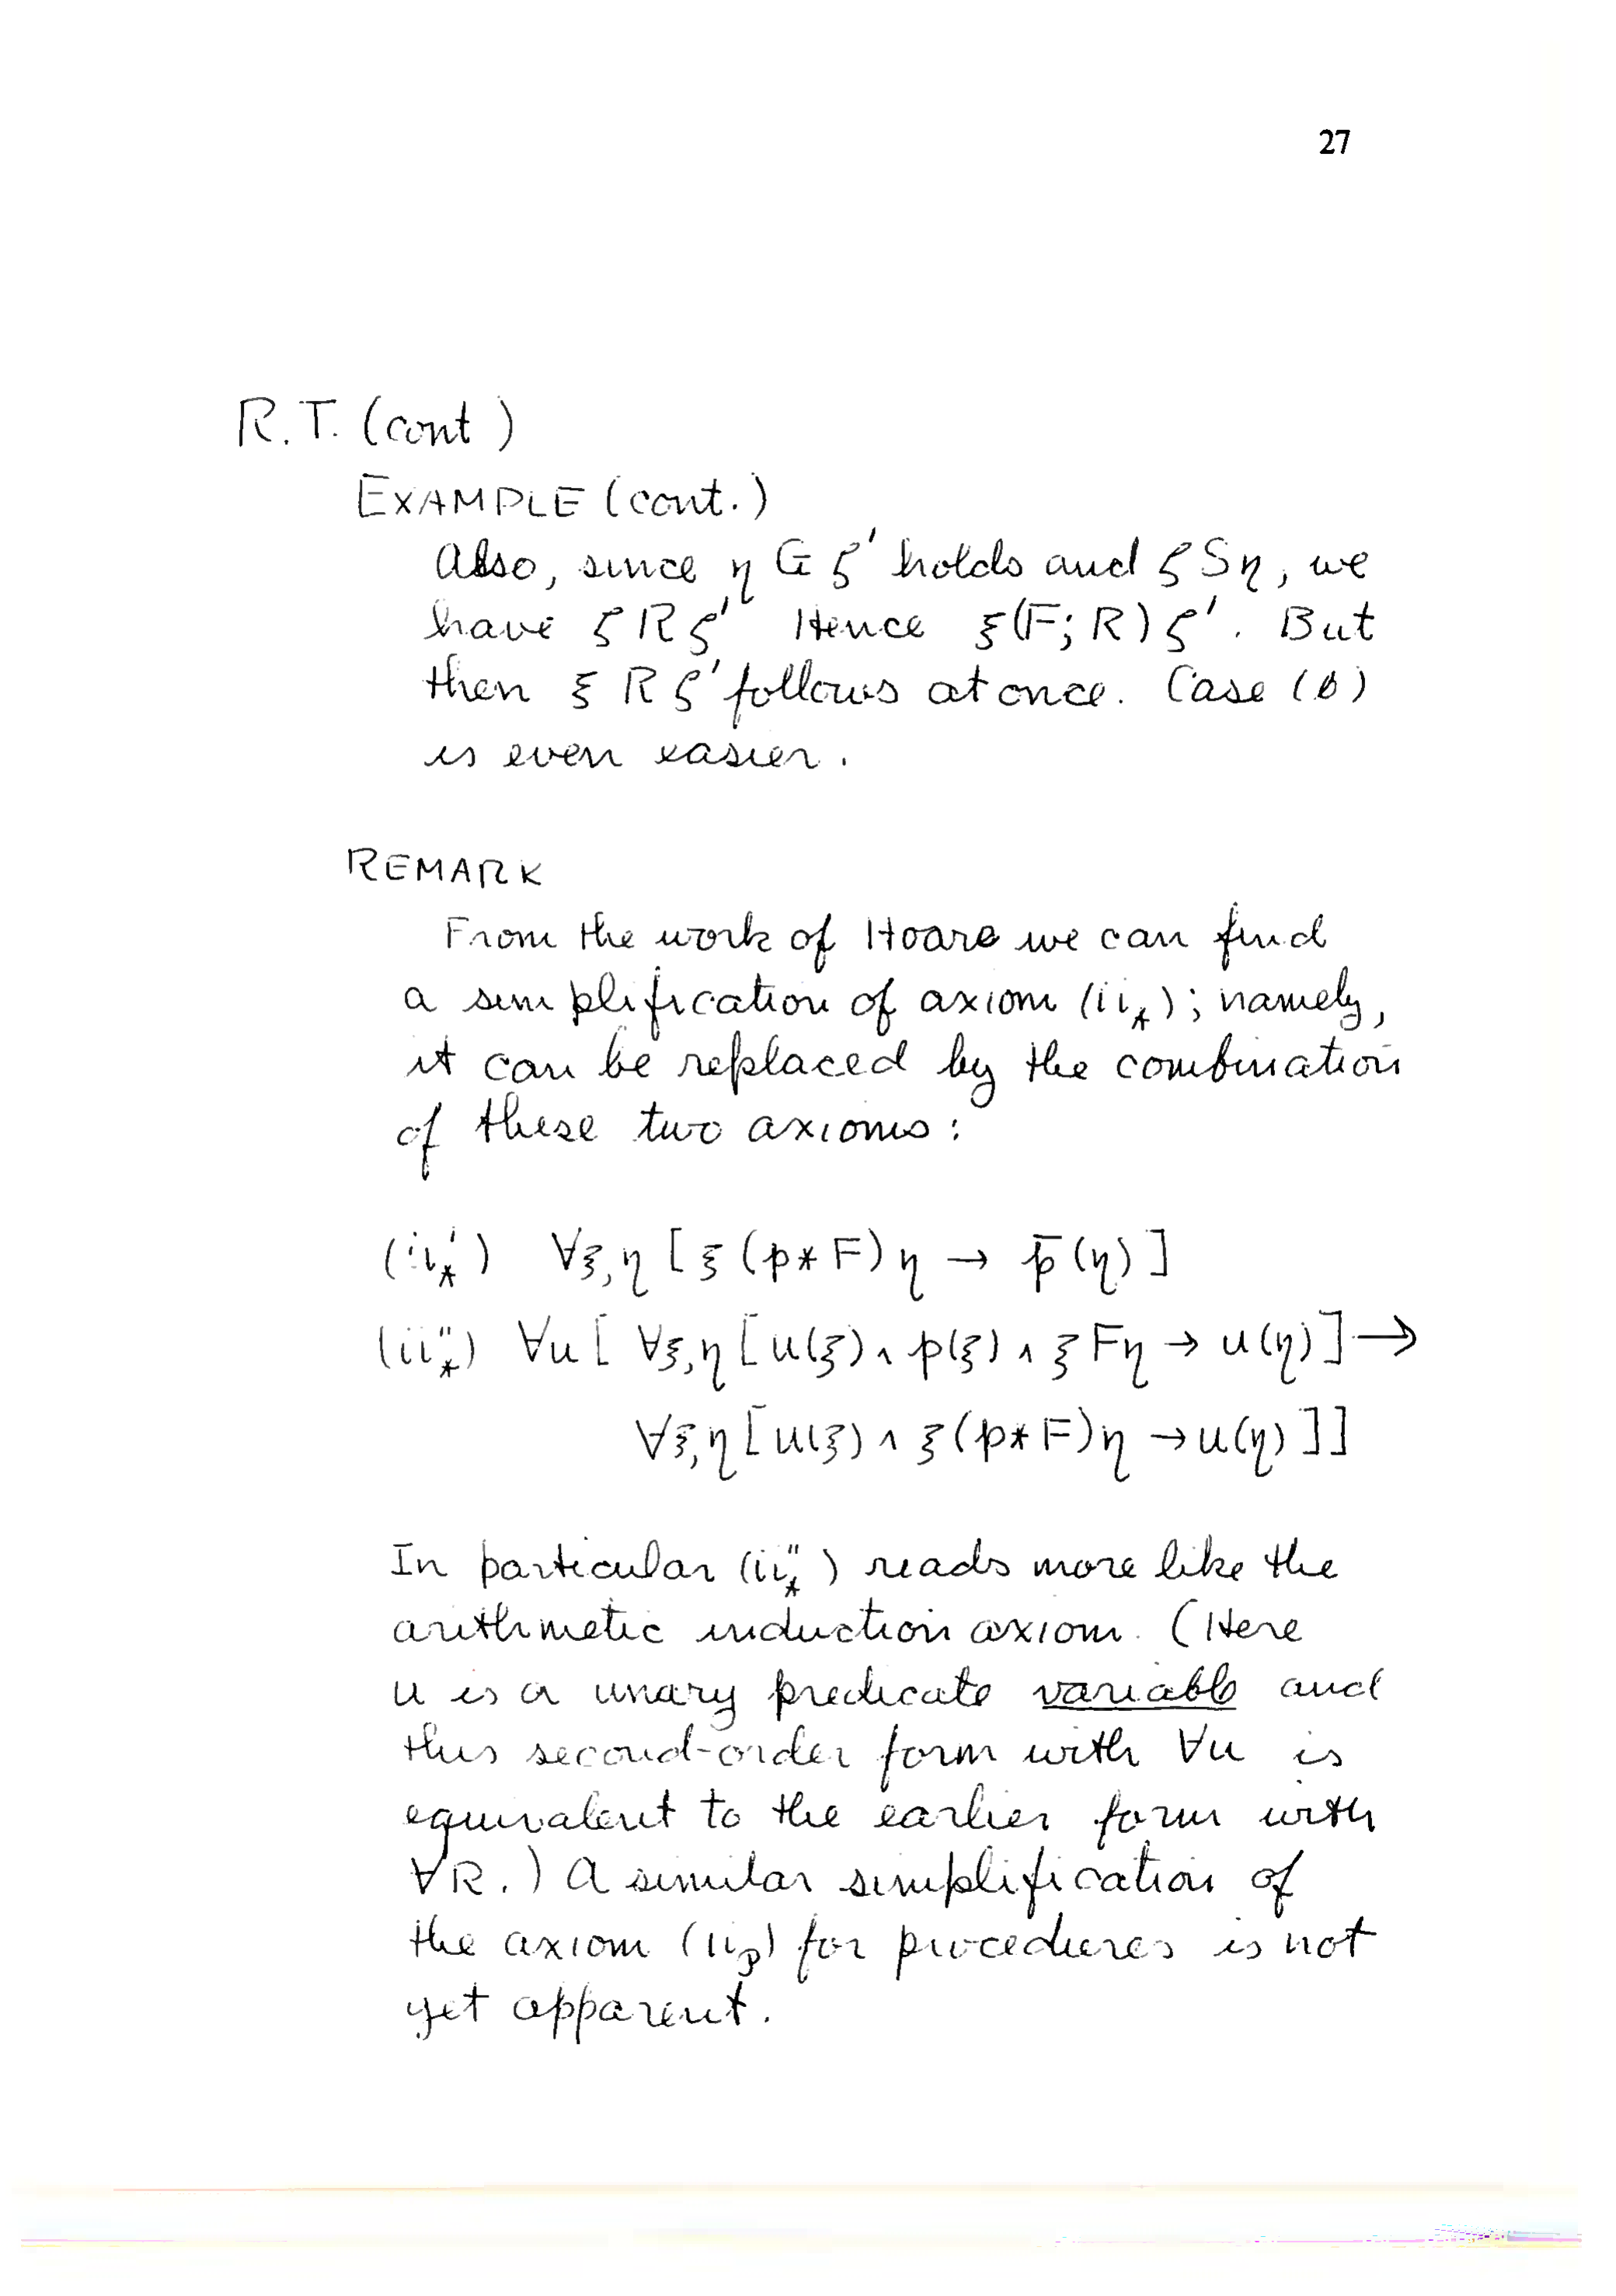 27
R.T. (cont)
EXAMPLE (cont.)
Also, since η G ζ′ holds and ζ S η, we
have ζ R ζ′ Hence ξ(F; R) ζ′. But
then ξ R ζ′ follows at once. Case (b)
is even easier.
REMARK
From the work of Hoare we can find
a simplification of axiom (ii⁎); namely,
it can be replaced by the combination
of these two axioms:
(ii′⁎) ∀ξ,η [ ξ (p * F) η → p̄ (η) ]
(ii″⁎) ∀u [ ∀ξ,η [ u(ξ) ∧ p(ξ) ∧ ξ F η → u(η) ] →
∀ξ,η [ u(ξ) ∧ ξ (p * F) η → u(η) ] ]
In particular (ii″⁎) reads more like the
arithmetic induction axiom. (Here
u is a unary predicate variable and
this second-order form with ∀u is
equivalent to the earlier form with
∀R.) A similar simplification of
the axiom (ii) for procedures is not
yet apparent.